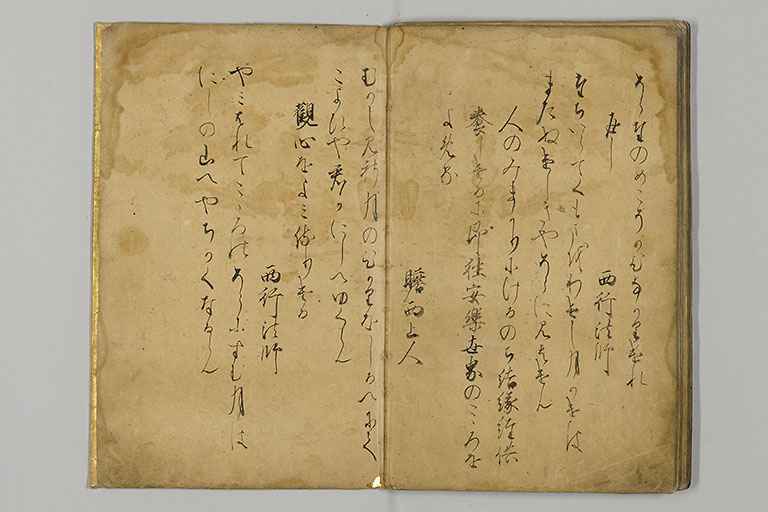 そらたのめこそかひなかりけれ
返し
西行法師
たちいらてくもまをわけし月かけは
またぬけしきやそらに見えけん
人のみまかりにけるのち結縁経供
養しけるに即往安樂世界のこゝろを
よめる
瞻西上人
むかし見し月のひかりをしるへにて
こよひや君かにしへゆくらん
觀心をよみ侍りける
西行法師
やみはれてこゝろのそらにすむ月は
にしの山へやちかくなるらん